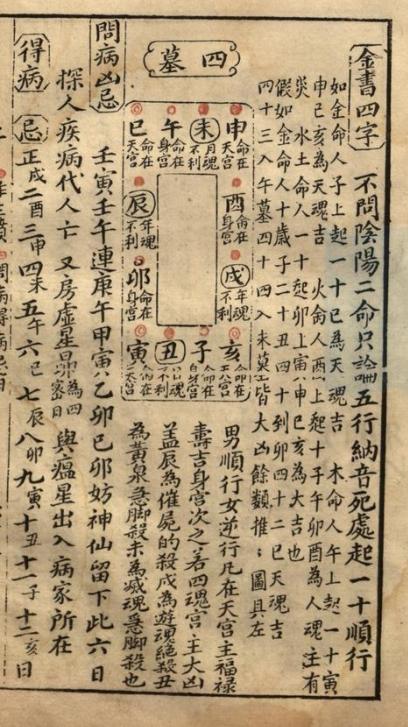 金書四字 不問陰陽二命只論五行納音死處起一十順行
如金命人子上起一十巳為天魂吉 木命人午上起一十寅
申巳亥為天魂吉 火命人酉上起十子午卯酉為人魂主有
災水土命人一十起卯上寅申巳亥為大吉也
假如金命人十歲子二十丑四十到卯四十二巳天魂吉
四十三入午墓四十四入未墓皆大凶餘類推；圖具左
四墓
申 命在天宮
未 月魂不利
午 命在
巳 命在天宮
酉 命在身宮
辰 年魂不利
戌 年魂不利
卯 命在身宮
亥 命在天宮
子 命在身宮
丑
寅 命在天宮
男順行女逆行凡在天宮主福祿
壽吉身宮次之若四魂宮主大凶
蓋辰為催屍的殺戌為遊魂絕殺丑
為黃泉急脚殺未為滅魂急脚殺也
問病凶忌 壬寅壬午連庚午甲寅乙卯已卯妨神仙留下此六日
探人疾病代人亡 又房虛星昴為四密日與瘟星出入病家所在
得病忌 正戌二酉三申四未五午六巳七辰八卯九寅十丑十一子十二亥日